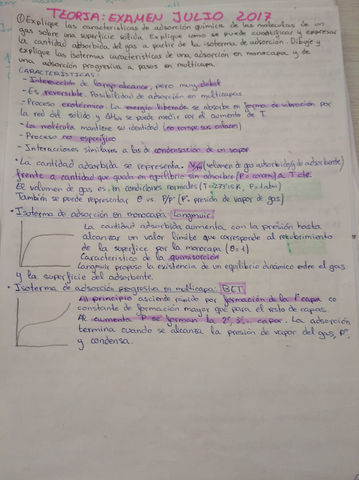 TEORIA: EXAMEN JULIO 2017
① Explique las características de adsorción química de las moléculas de un
gas sobre una superficie sólida. Explique como se puede cuantificar y expresar
la cantidad absorbida del gas a partir de la isoterma de adsorción. Dibuje y
explique las isotermas características de una adsorción en monocapa y de
una adsorción progresiva a pasos en multicapa.
CARACTERÍSTICAS:
- Interacción de largo alcance, pero muy débil
- Es reversible. Posibilidad de adsorción en multicapas
- Proceso exotérmico. La energía liberada se absorbe en forma de vibración por
la red del sólido y ΔHad se puede medir por el aumento de T.
- La molécula mantiene su identidad (no rompe sus enlaces)
- Proceso no específico
- Interacciones similares a las de condensación de un vapor.
• La cantidad adsorbida se representa: (volumen de gas adsorbido/g de adsorbente)
frente a cantidad que queda en equilibrio sin absorber a T cte.
El volumen de gas es en condiciones normales (T=273'15 K, P=1 atm)
También se puede representar θ vs. P/P* (P*: presión de vapor de gas)
• Isoterma de adsorción en monocapa: Langmuir.
La cantidad adsorbida aumenta con la presión hasta
alcanzar un valor límite que corresponde al recubrimiento
de la superficie por la monocapa (θ=1)
Característico de la quimisorción
Langmuir propuso la existencia de un equilibrio dinámico entre el gas
y la superficie del adsorbente.
• Isoterma de adsorción progresiva en multicapa: BET
Al principio asciende rápido por formación de la 1ª capa cte
constante de formación mayor que para el resto de capas.
Al aumenta P se forman la 2ª, 3ª,... capas. La adsorción
termina cuando se alcanza la presión de vapor del gas, P*,
y condensa.